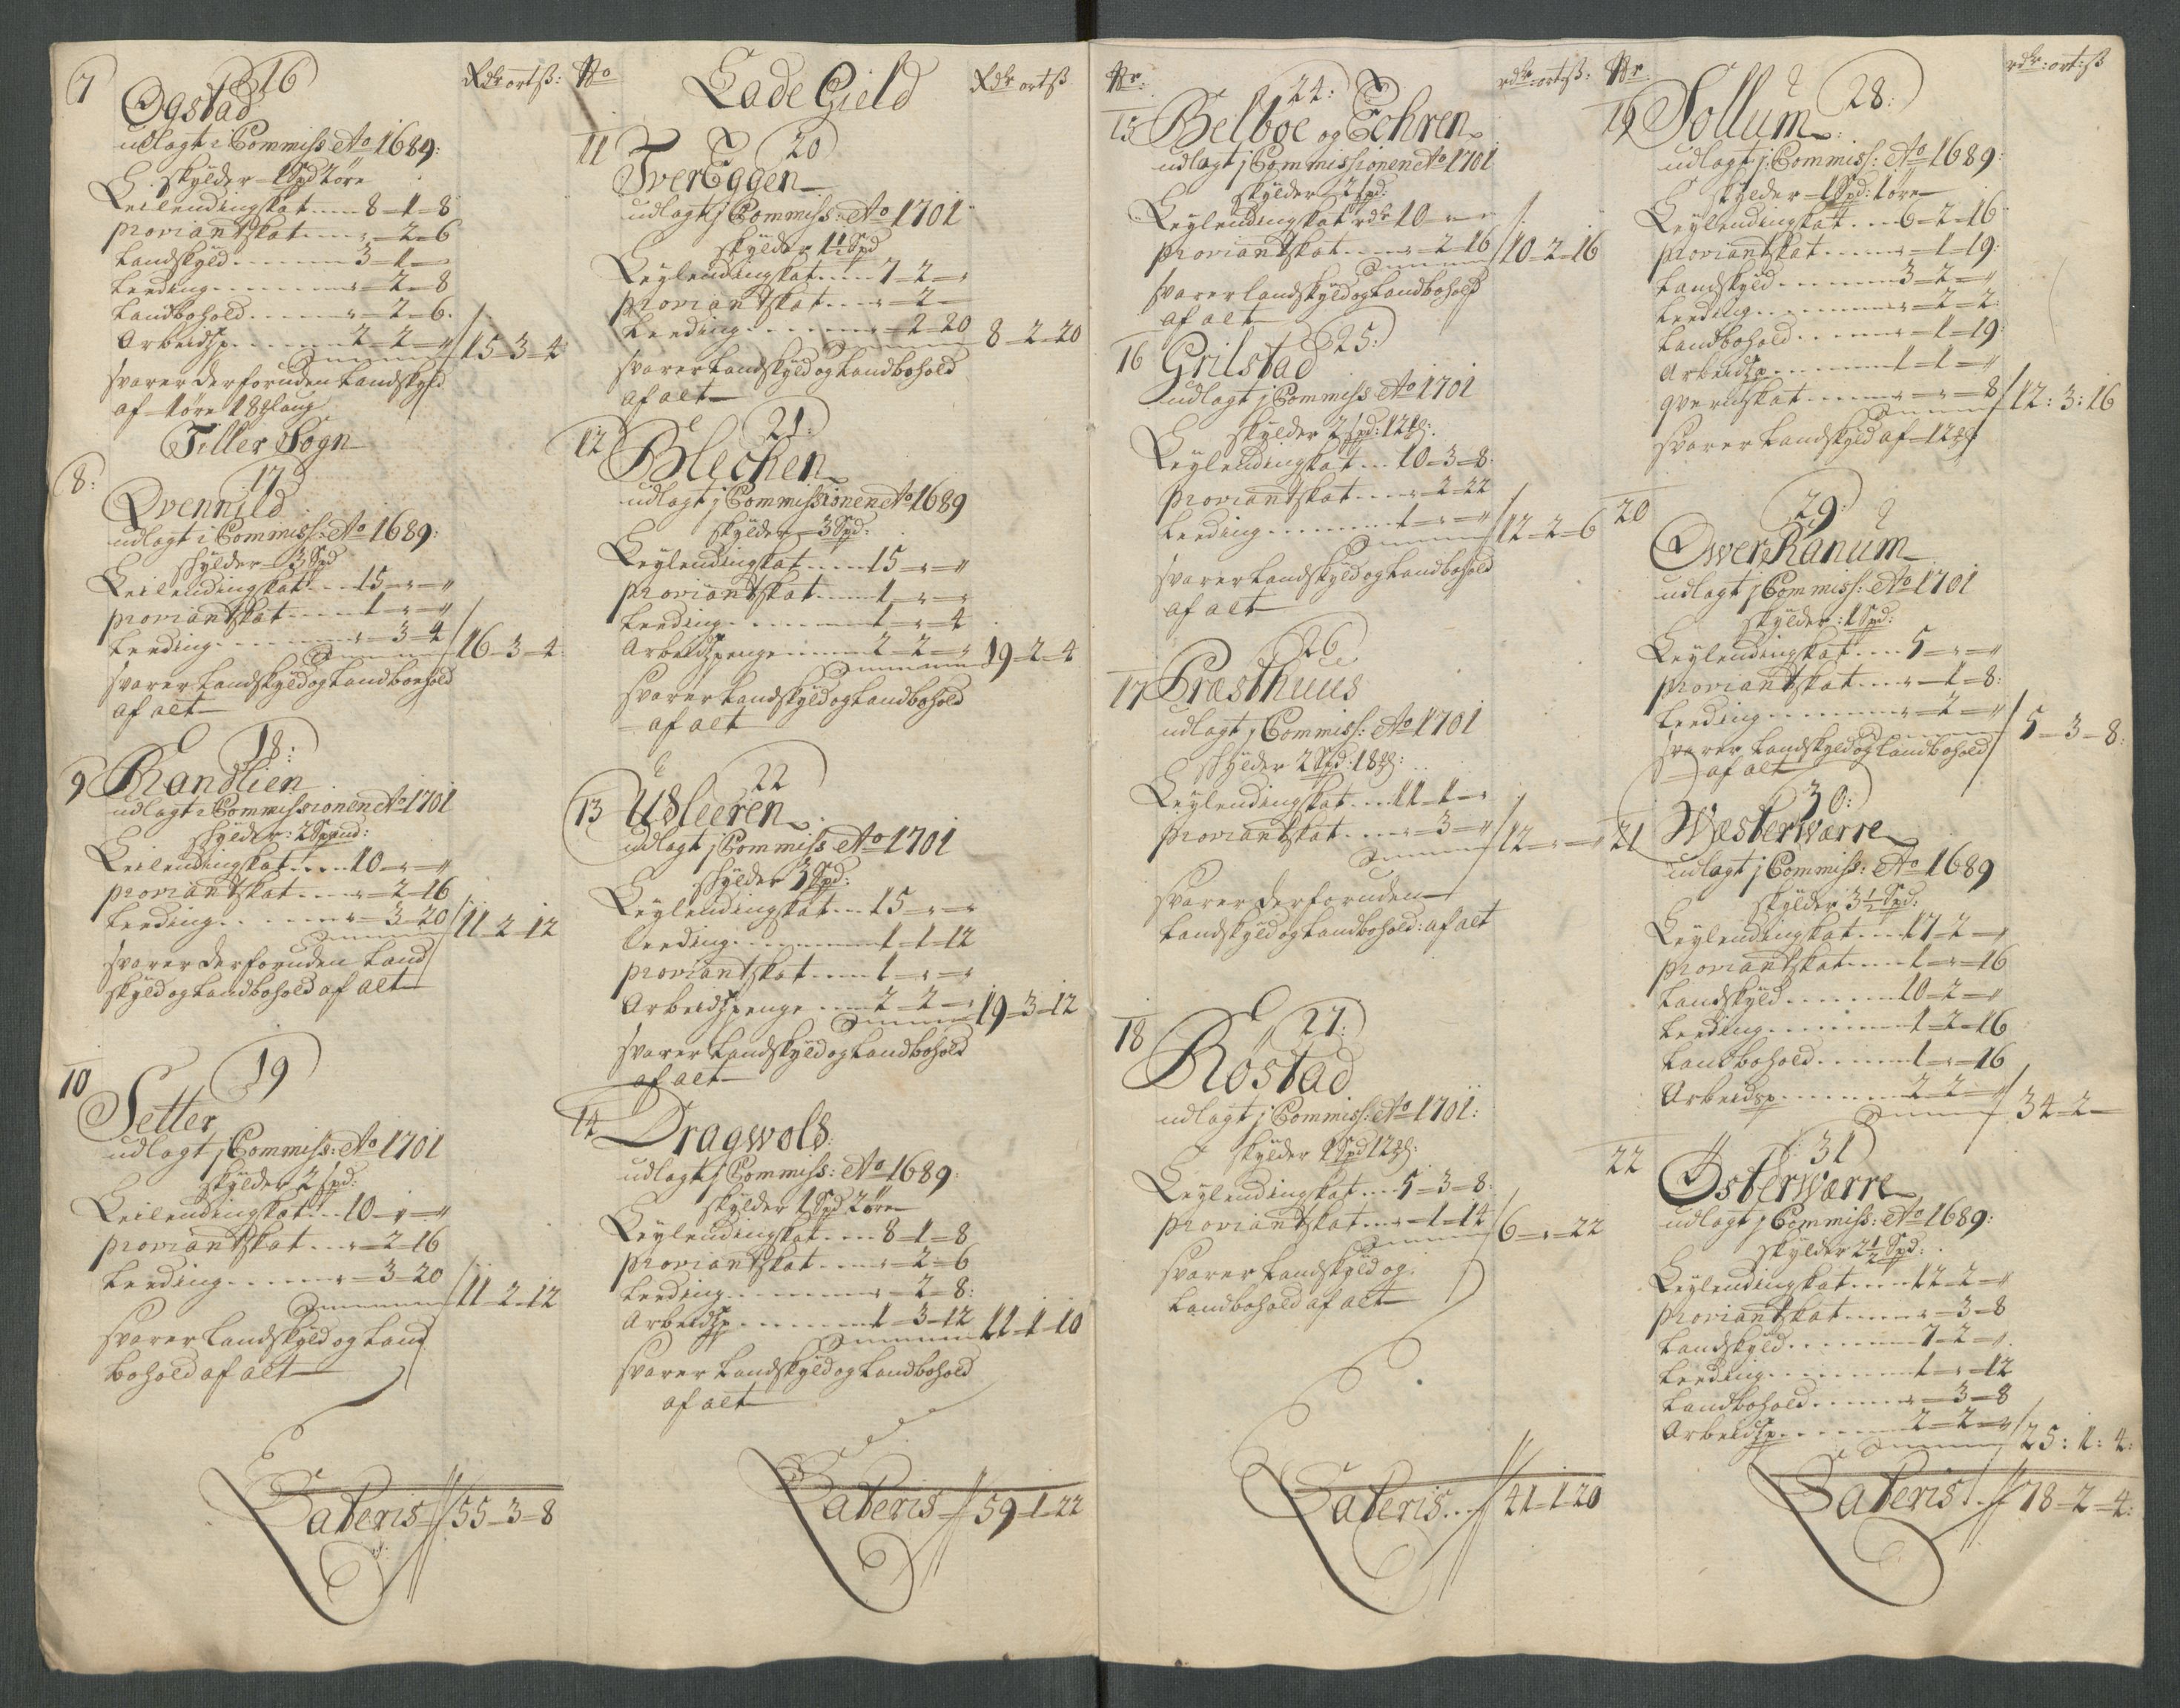 Rdr ort ß:
7
16
Ogstad
udlagt i Commiss: Ao 1689:
skylder 1 Spd 2 öre
Leilendingskat 8-1-8
proviantskat „-2-6
Landskyld 3-1-
Leeding „-2-8
Landbohold „-2-6.
Arbeidsp. 2-2-„
Summa 15-3-4
svarer derforuden Landskyld
af 1 öre 18 laug
Tiller Sogn
8:
17
Qvennild
udlagt i Commiss: Ao 1689:
skylder 3 Spd
Leilendingskat 15-„-„
proviantskat 1-„-„
Leeding „-3-4
Summa 16-3-4:
svarer Landskyld og Landbohold
af alt
9
18:
Randlien
udlagt i Commissionen Ao 1701
skylder: 2 Spand:
Leilendingskat 10-„-„
proviantskat „-2-16
Leeding „-3-20
Summa 11-2-12
svarer derforuden Land
skyld og Landbohold af alt
10
19
Setter
udlagt j Commiss: Ao 1701
skylder 2 Spd:
Leilendingskat 10-„-„
proviantskat „-2-16
Leeding „-3-20
Summa 11-2-12
svarer Landskyld og Land
bohold af alt
Lateris 55-3-8
No
Lade Gield
Rdr ort ß
11
20
TverEggen
udlagt j Commiss: Ao 1701
skylder 1½ Spd
Leylendingskat 7-2-„
proviantskat „-2-
Leeding „-2-20
Summa 8-2-20
svarer Landskyld og Landbohold
af alt
12
21:
Blechen
udlagt j Commissionen Ao 1689
skylder 3 Spd:
Leylendingskat 15-„-„
proviantskat 1-„-„
Leeding 1-„-4
Arbeidspenge 2-2-„
Summa 19-2-4
svarer Landskyld og Landbohold
af alt
13
22
Usleeren
udlagt j Commiss Ao 1701
skylder 3 Spd:
Leylendingskat 15-„-„
Leeding 1-1-12
proviantskat 1-„-„
Arbeidspenge 2-2-„
Summa 19-3-12
svarer Landskyld og Landbohold
af alt
14
Dragwold:
udlagt j Commiss: Ao 1689:
skylder 1 Spd 2 öre
Leylendingskat 8-1-8
proviantskat „-2-6
Leeding „-2-8:
Arbeidsp. 1-3-12
Summa 11-1-10
svarer Landskyld og Landbohold
af alt
Lateris 59-1-22
Nr:
rdr: ort: ß:
15
24:
Belboe og Echren
udlagt j Commissionen Ao 1701
skylder 2 Spd:
Leylendingskat rdr 10-„-„
proviantskat „-2-16
Summa 10-2-16
svarer Landskyld og Landbohold
af alt
16
25:
Grilstad
udlagt j Commiss Ao 1701
skylder 2 Spd: 12
Leylendingskat 10-3-8
proviantskat „-2-22
Leeding 1-„-„
Summa 12-2-6
svarer Landskyld og Landbohold
af alt
17
26
Præsthuus
udlagt j Commiss: Ao 1701
skylder 2 Spd: 18
Leylendingskat 11-1-„
proviantskat „-3-„
Summa 12-„-„
svarer derforuden
Landskyld og Landbohold: af alt
18
27:
Röstad
udlagt j Commiss: Ao 1701:
skylder 1 Spd 12
Leylendingskat 5-3-8:
proviantskat „-1-14
Summa 6-„-22
svarer Landskyld og
Landbohold af alt
Lateris 41-1-20
Nr.
rdr: ort: ß
19
28:
Sollum
udlagt j Commiss: Ao 1689:
skylder 1 Spd: 1 öre
Leylendingskat 6-2-16
proviantskat „-1-19:
Landskyld 3-2-„
Leeding „-2-2:
Landbohold „-1-19:
Arbeidsp. 1-1-„
qvernskat „-„-8
Summa 12:3:16
svarer Landskyld af 12
20
29:
Ower Ranum
udlagt j Commiss: Ao 1701
skylder: 1 Spd:
Leylendingskat 5-„-„
proviantskat „-1-8:
Leeding „-2-„
5-3-8:
svarer Landskyld og Landbohold
af alt
21
30:
WæsterWarre
udlagt j Commiss: Ao 1689
skylder 3½ Spd:
Leylendingskat 17-2-„
proviantskat 1-„-16
Landskyld 10-2-„
Leeding 1-2-16
Landbohold 1-„-16
Arbeidsp. 2-2-„
Summa 34-2-
22
31
ÖsterWarre
udlagt j Commiss: Ao 1689:
skylder 2½ Spd:
Leylendingskat 12-2-„
proviantskat „-3-8
Landskyld 7-2-„
Leeding 1-„-12
Landbohold „-3-8
Arbeidsp. 2-2-„
Summa 25:1:4:
Lateris 78-2-4: